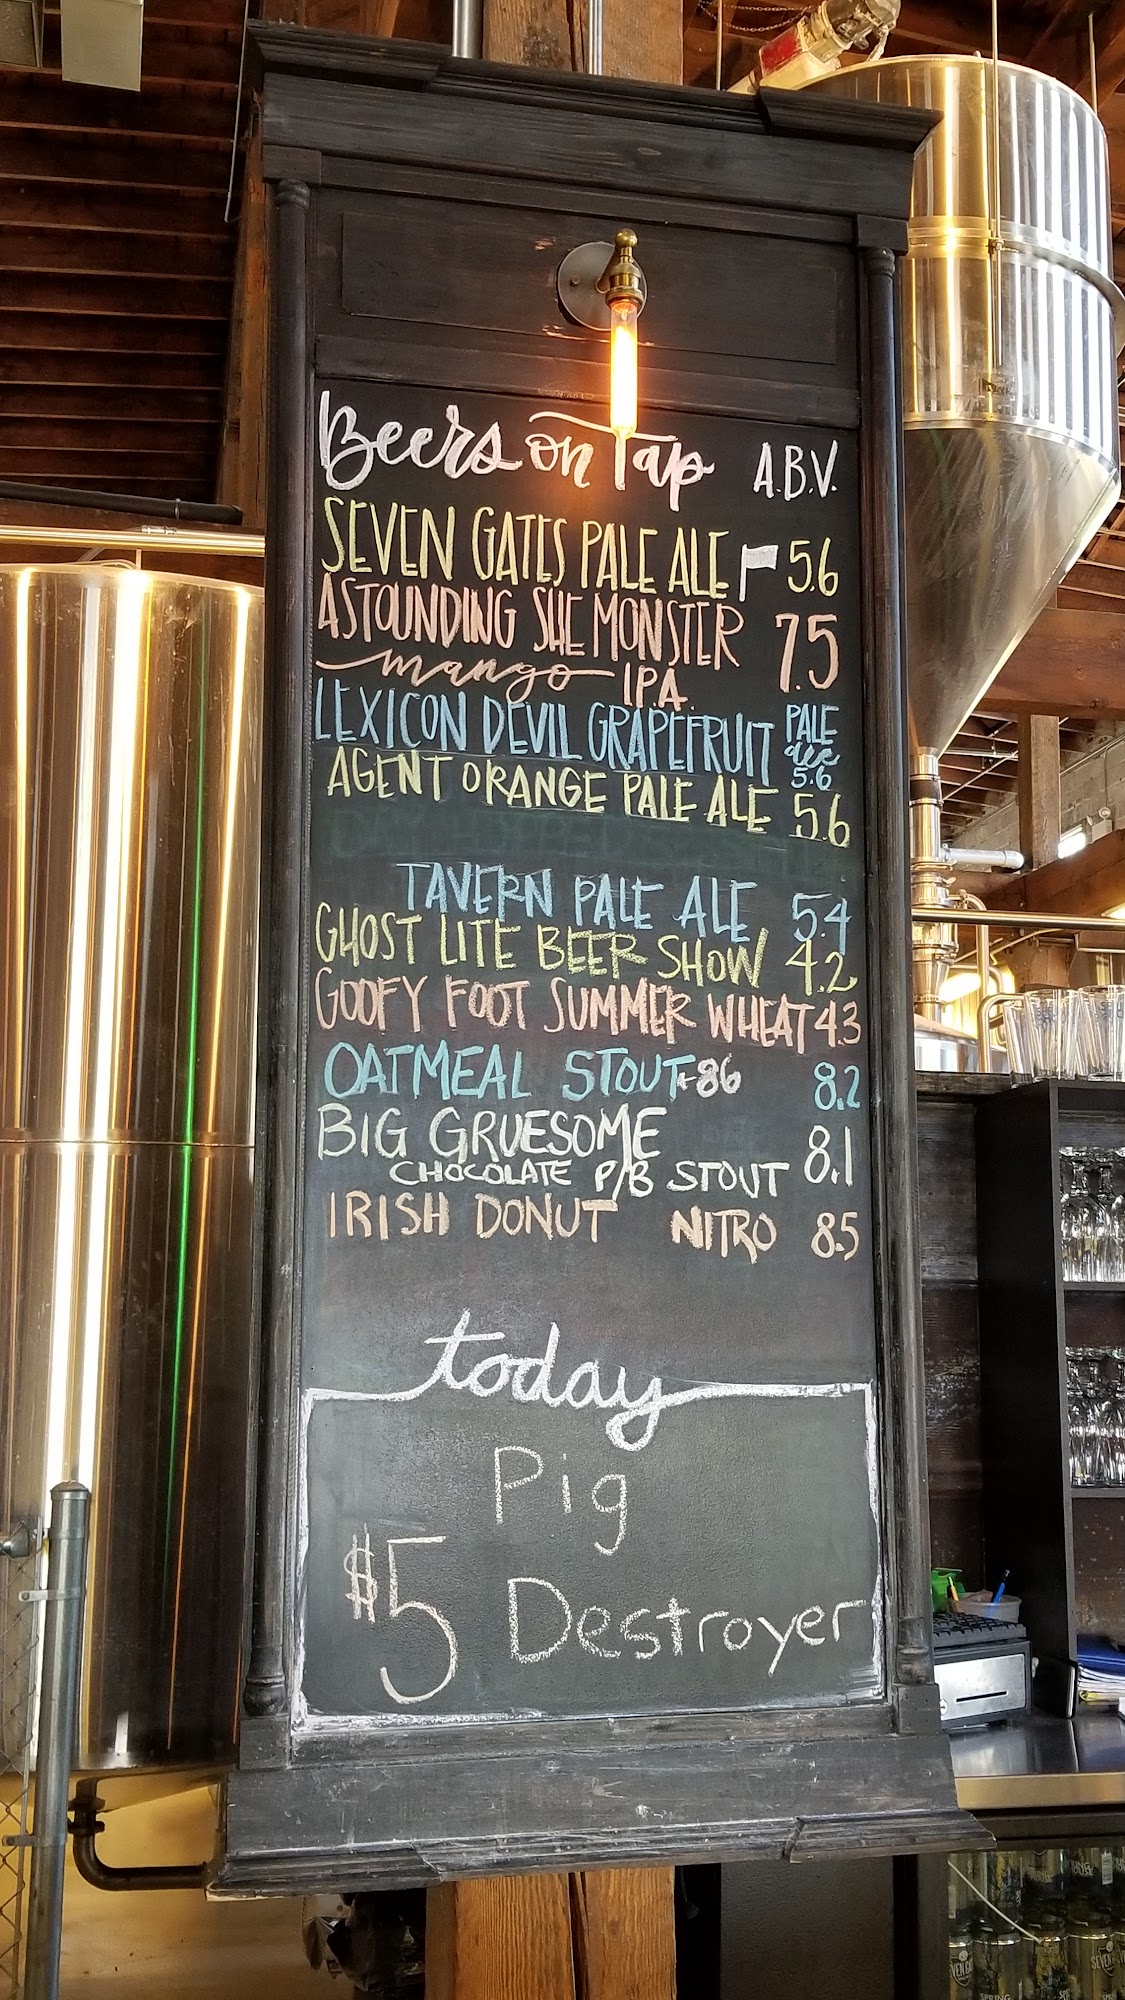 Beers on Tap A.B.V.
SEVEN GATES PALE ALE 5.6
ASTOUNDING SHE MONSTER 7.5
mango I.P.A.
LEXICON DEVIL GRAPEFRUIT PALE
ale
5.6
AGENT ORANGE PALE ALE 5.6
TAVERN PALE ALE 5.4
GHOST LITE BEER SHOW 4.2
GOOFY FOOT SUMMER WHEAT 4.3
OATMEAL STOUT ←86 8.2
BIG GRUESOME 8.1
CHOCOLATE P/B STOUT
IRISH DONUT NITRO 8.5
today
Pig
$5 Destroyer